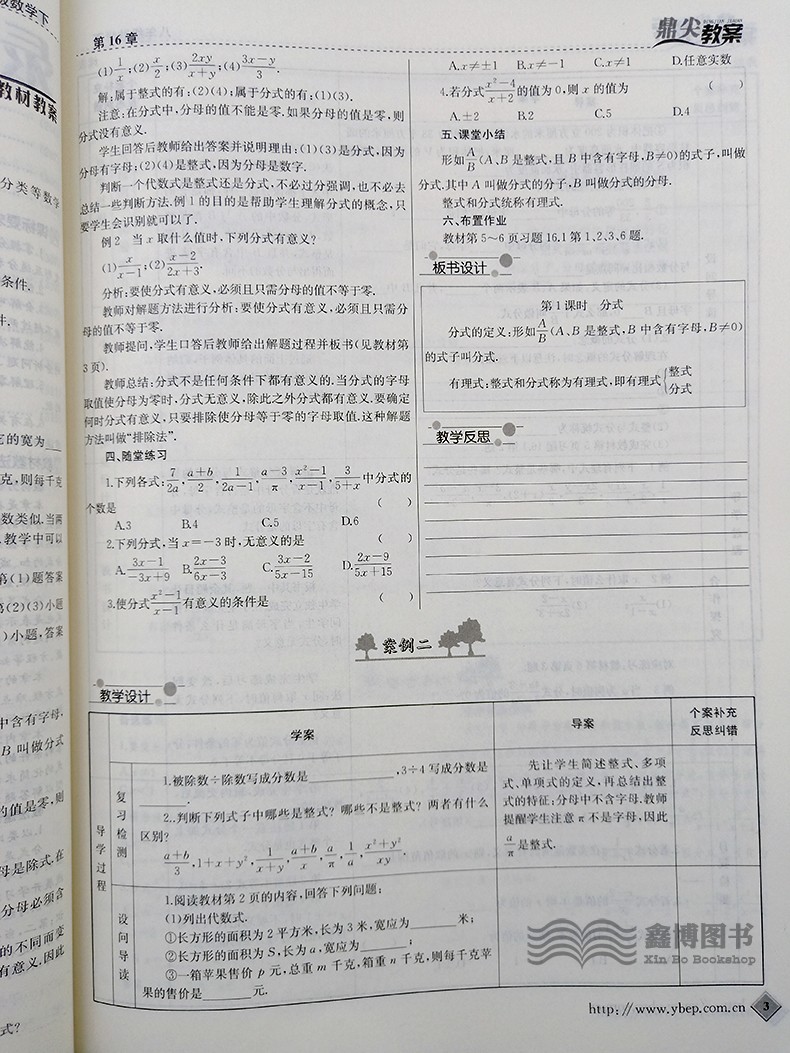 级数学下
教材教案
分类等数学
条件.
件.
它的宽为
克,则每千克
数类似.当两
教学中可以
第(1)题答案
第(2)(3)小题
)小题,答案
中含有字母,
B 叫做分式
的值是零,则
母是除式.在
分母必须含
的不同而变
有意义.因此
式?
第16章
鼎尖教案
(1)1/x;(2)x/2;(3)2xy/(x+y);(4)(3x-y)/3.
解:属于整式的有:(2)(4);属于分式的有:(1)(3).
注意:在分式中,分母的值不能是零.如果分母的值是零,则
分式没有意义.
学生回答后教师给出答案并说明理由:(1)(3)是分式,因为
分母有字母;(2)(4)是整式,因为分母是数字.
判断一个代数式是整式还是分式,不必过分强调,也不必去
总结一些判断方法.例1的目的是帮助学生理解分式的概念,只
要学生会识别就可以了.
例2 当x取什么值时,下列分式有意义?
(1)x/(x-1);(2)(x-2)/(2x+3).
分析:要使分式有意义,必须且只需分母的值不等于零.
教师对解题方法进行分析:要使分式有意义,必须且只需分
母的值不等于零.
教师提问,学生口答后教师给出解题过程并板书(见教材第
3页).
教师总结:分式不是任何条件下都有意义的.当分式的字母
取值使分母为零时,分式无意义,除此之外分式都有意义.要确定
何时分式有意义,只要排除使分母等于零的字母取值.这种解题
方法叫做“排除法”.
四、随堂练习
1.下列各式:7/2a,(a+b)/2,1/(2a-1),(a-3)/π,(x²-1)/(x-1),3/(5+x)中分式的
个数是 ( )
A.3 B.4 C.5 D.6
2.下列分式,当x=-3时,无意义的是 ( )
A.(3x-1)/(-3x+9) B.(2x-3)/(6x-3) C.(3x-2)/(5x-15) D.(2x-9)/(5x+15)
3.使分式(x²-1)/(x-1)有意义的条件是 ( )
A.x≠±1 B.x≠-1 C.x≠1 D.任意实数
4.若分式(x²-4)/(x+2)的值为0,则x的值为 ( )
A.±2 B.2 C.5 D.2
五、课堂小结
形如A/B(A、B是整式,且B中含有字母,B≠0)的式子,叫做
分式.其中A叫做分式的分子,B叫做分式的分母.
整式和分式统称有理式.
六、布置作业
教材第5~6页习题16.1第1,2,3,6题.
板书设计
第1课时 分式
分式的定义:形如A/B(A、B是整式,B中含有字母,B≠0)
的式子叫分式.
有理式:整式和分式称为有理式,即有理式{整式
分式
教学反思
案例二
教学设计
学案 导案 个案补充
反思纠错
导学过程
复习检测
1.被除数÷除数写成分数是________,3÷4写成分数是
________.
2.判断下列式子中哪些是整式?哪些不是整式?两者有什么
区别?
(a+b)/3,1+x+y²,1/(x+y),(a+b)/x,a/π,1/a,(x²+y²)/xy.
先让学生简述整式、多项
式、单项式的定义,再总结出整
式的特征:分母中不含字母.教师
提醒学生注意π不是字母,因此
a/π是整式.
设问导读
1.阅读教材第2页的内容,回答下列问题:
(1)列出代数式.
①长方形的面积为2平方米,长为3米,宽应为________米;
②长方形的面积为S,长为a,宽应为________;
③一箱苹果售价p元,总重m千克,箱重n千克,则每千克苹
果的售价是________元.
鑫博图书
Xin Bo Bookshop
http://www.ybep.com.cn 3